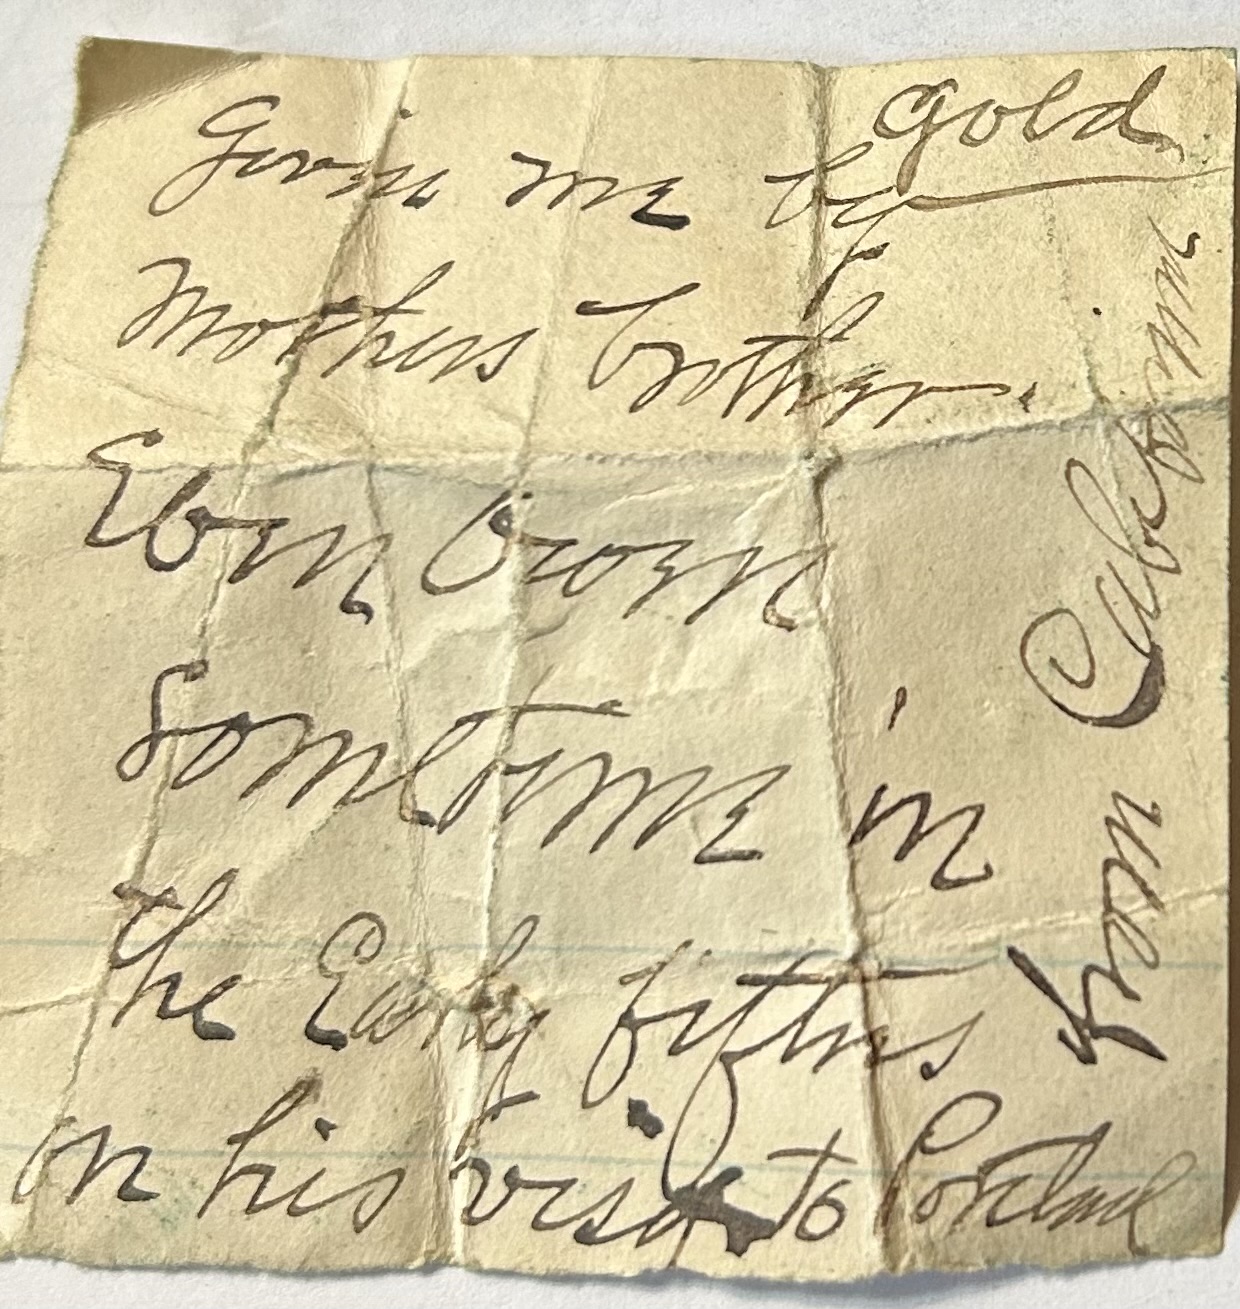 gold
Givin me by
Mothers brother.
Eben Crown
Sometime in
the Early fifties
on his visit to Portland
from California